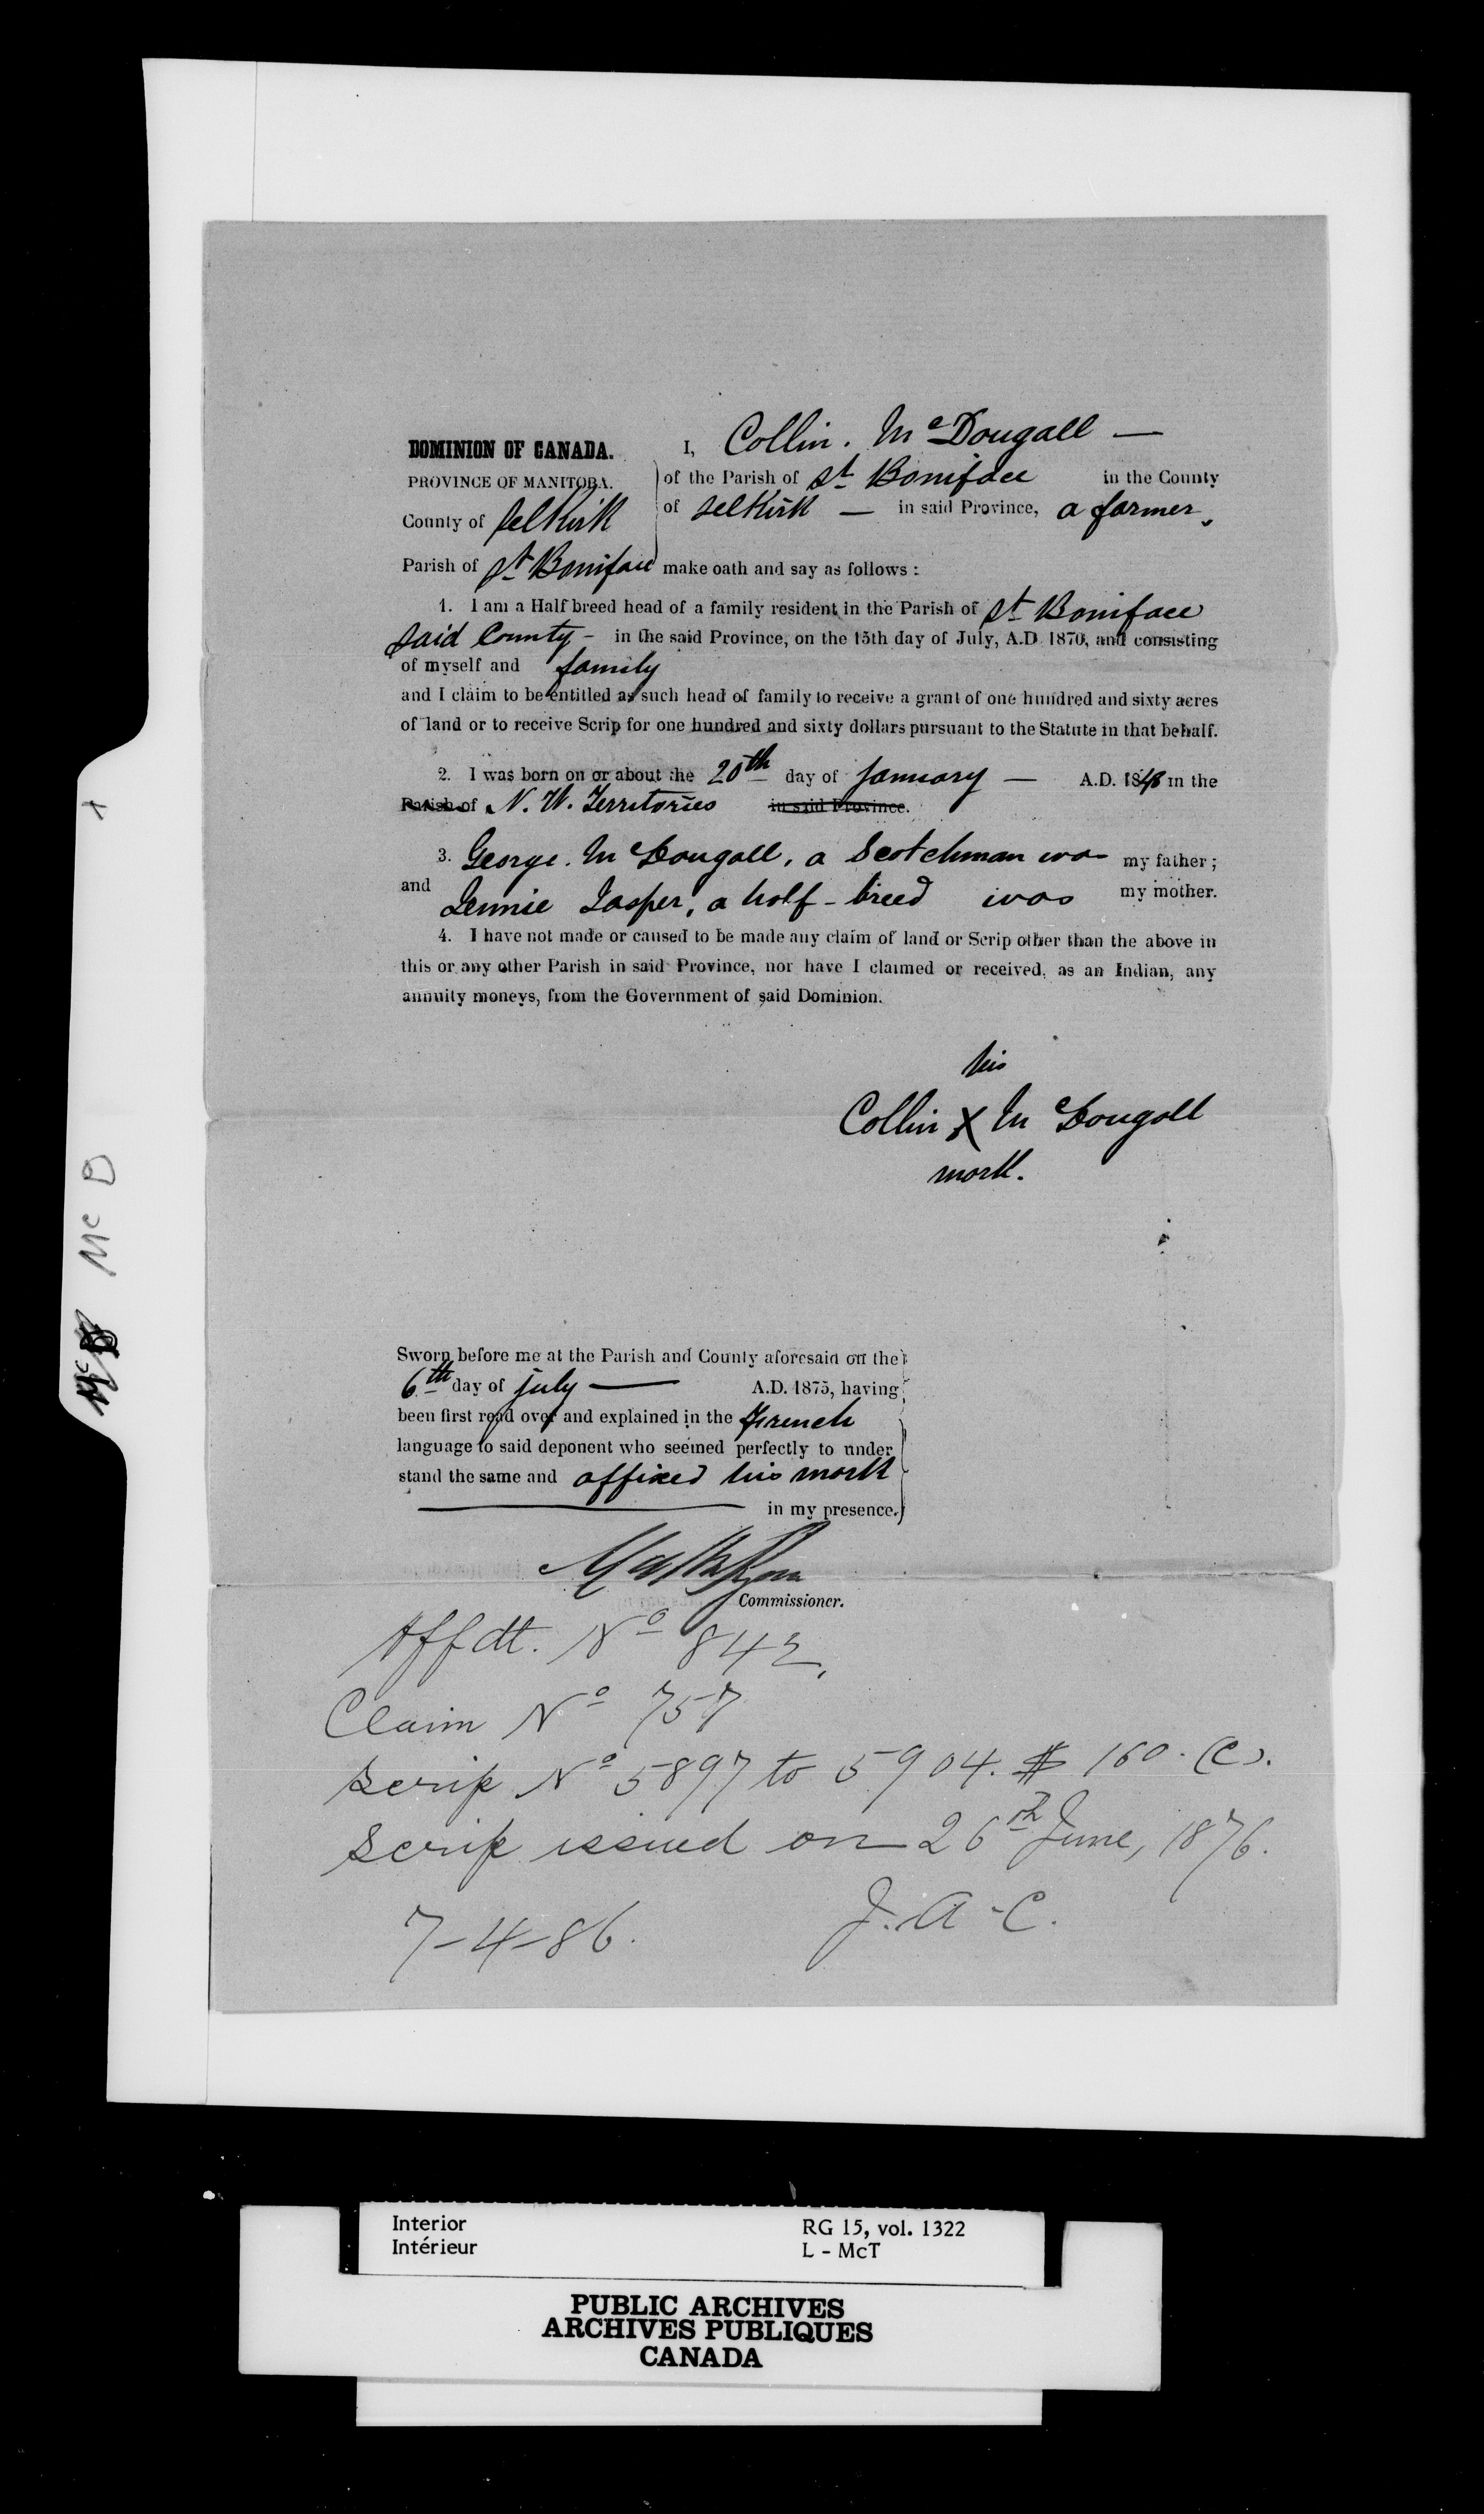 DOMINION OF CANADA.
PROVINCE OF MANITOBA.
County of Selkirk
Parish of St Boniface
I, Collin. McDougall —
of the Parish of St Boniface in the County
of Selkirk — in said Province, a farmer.
make oath and say as follows:
1. I am a Half breed head of a family resident in the Parish of St Boniface
said County - in the said Province, on the 15th day of July, A.D. 1870, and consisting
of myself and family
and I claim to be entitled as such head of family to receive a grant of one hundred and sixty acres
of land or to receive Scrip for one hundred and sixty dollars pursuant to the Statute in that behalf.
2. I was born on or about the 20th day of January — A.D. 1848 in the
Parish of N. W. Territories in said Province.
3. George. McDougall, a Scotchman was my father;
and Jennie Jasper, a half-breed was my mother.
4. I have not made or caused to be made any claim of land or Scrip other than the above in
this or any other Parish in said Province, nor have I claimed or received, as an Indian, any
annuity moneys, from the Government of said Dominion.
his
Collin X McDougall
mark.
Sworn before me at the Parish and County aforesaid on the
6th day of July — A.D. 1875, having
been first read over and explained in the French
language to said deponent who seemed perfectly to under
stand the same and affixed his mark
in my presence.
Commissioner.
Affdt. No 842.
Claim No 757
Scrip No 5897 to 5904. $160. (C).
Scrip issued on 26th June, 1876.
7-4-86. J. A-C.
McD
McD
Interior
Intérieur
RG 15, vol. 1322
L - McT
PUBLIC ARCHIVES
ARCHIVES PUBLIQUES
CANADA